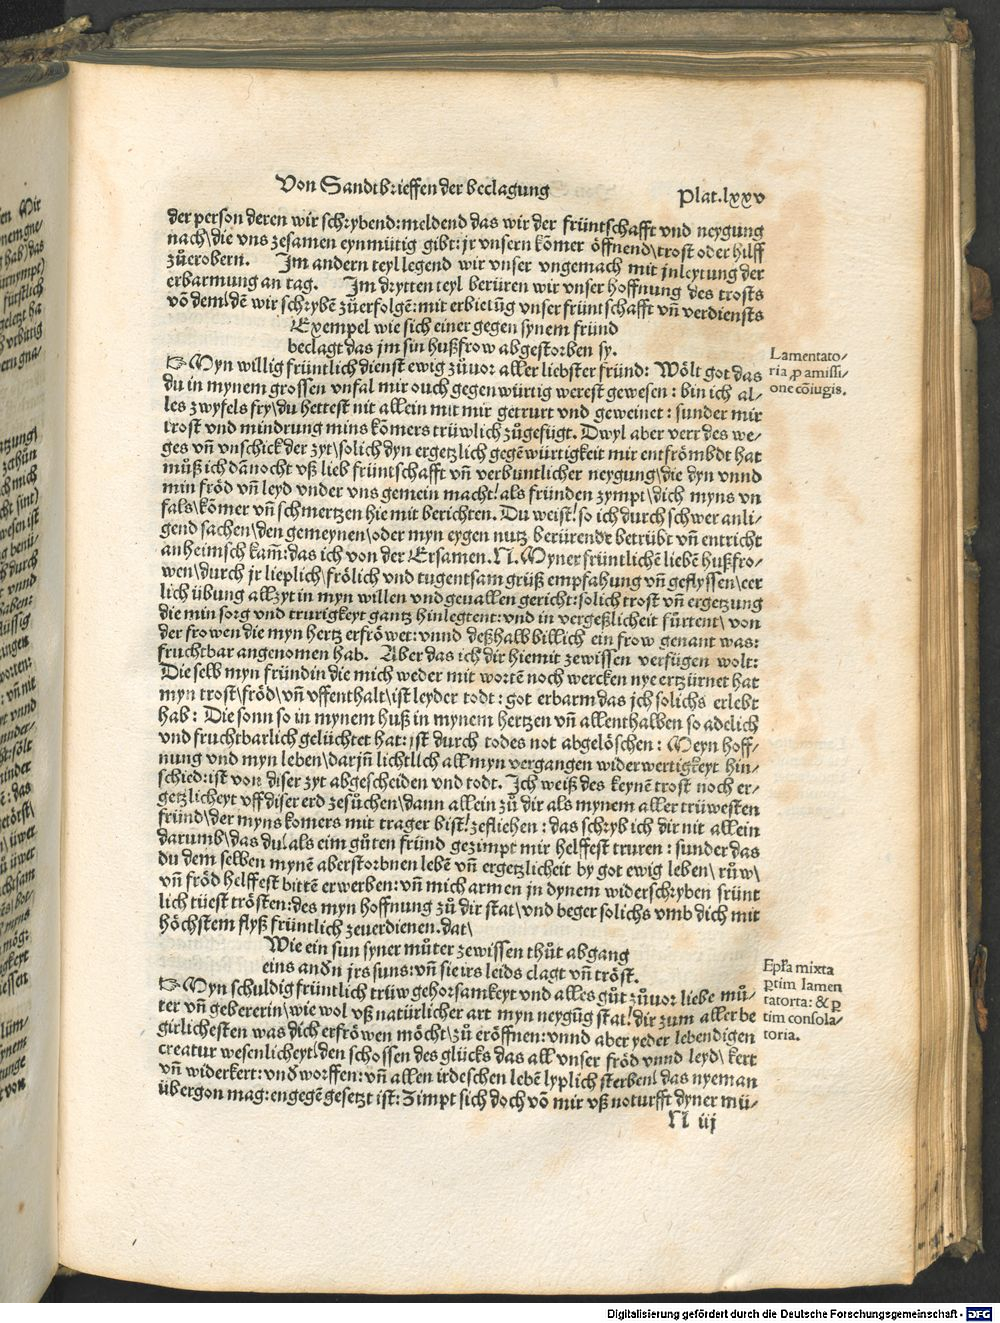 Von Sandtbrieffen der beclagung
Plat.lxxv
der person deren wir schrybend: meldend das wir der früntschafft vnd neygung
nach\die vns zesamen eynmütig gibt: jr vnsern kõmer öffnend\trost oder hilff
zůerobern. Im andern teyl legend wir vnser vngemach mit jnleytung der
erbarmung an tag. Im drytten teyl berüren wir vnser hoffnung des trosts
võ dem\dẽ wir schrybẽ zůerfolgẽ: mit erbietũg vnser früntschafft vñ verdiensts
Exempel wie sich einer gegen synem fründ
beclagt das jm sin hußfrow abgestorben sy.
Lamentato-
ria ꝓ amissi-
one cõiugis.
Myn willig früntlich dienst ewig zůuor aller liebster fründ: Wölt got das
du in mynem grossen vnfal mir ouch gegenwürtig werest gewesen: bin ich al-
les zwyfels fry\du hettest nit allein mit mir getrurt vnd geweinet: sunder mir
trost vnd mindrung mins kõmers trüwlich zůgefügt. Dwyl aber verr des we-
ges vñ vnschick der zyt\solich dyn ergetzlich gegẽwürtigkeit mir entfrömbdt hat
můß ich dãnocht vß lieb früntschafft vñ verbuntlicher neygung\die dyn vnnd
min fröd vñ leyd vnder vns gemein macht! als fründen zympt\dich myns vn
fals\kõmer vñ schmertzen hie mit berichten. Du weist! so ich durch schwer anli-
gend sachen\den gemeynen\oder myn eygen nutz berürende betrübt vñ entricht
anheimsch kam̃: das ich von der Ersamen. N. Myner früntlichẽ liebẽ hußfro-
wen\durch jr lieplich\frölich vnd tugentsam grüß empfahung vñ geflyssen\eer
lich übung allzyt in myn willen vnd geuallen gericht: solich trost vñ ergetzung
die min sorg vnd trurigkeyt gantz hinlegtent: vnd in vergeßlicheit fürtent\ von
der frowen die myn hertz erfröwet: vnnd deßhalb billich ein frow genant was:
fruchtbar angenomen hab. Aber das ich dir hiemit zewissen verfügen wolt:
Die selb myn fründin die mich weder mit wortẽ noch wercken nye ertzürnet hat
myn trost\fröd\vñ vffenthalt\ist leyder todt: got erbarm das jch solichs erlebt
hab: Die sonn so in mynem huß in mynem hertzen vñ allenthalben so adelich
vnd fruchtbarlich gelüchtet hat: jst durch todes not abgelöschen: Meyn hoff-
nung vnd myn leben\darjñ lychtlich all myn vergangen widerwertigkeyt hin-
schied: ist von diser zyt abgescheiden vnd todt. Ich weiß des keynẽ trost noch er-
getzlicheyt vff diser erd zesůchen\dann allein zů dir als mynem aller trüwesten
fründ\der myns komers mit trager bist! zefliehen: das schryb ich dir nit allein
darumb\das du\als eim gůten fründ gezimpt mir helffest truren: sunder das
du dem selben mynẽ aberstorbnen lebẽ vñ ergetzlicheit by got ewig leben\růw\
vñ fröd helffest bittẽ erwerben: vñ mich armen jn dynem widerschryben frünt
lich tüest trösten: des myn hoffnung zů dir stat\vnd beger solichs vmb dich mit
höchstem flyß früntlich zeuerdienen. dat\
Wie ein sun syner můter zewissen thůt abgang
eins andñ jrs suns: vñ sie irs leids clagt vñ tröst.
Epl̃a mixta
ꝑtim lamen
tatoria: & ꝑ
tim consola-
toria.
Myn schuldig früntlich trüw gehorsamkeyt vnd alles gůt zůuor liebe mů-
ter vñ gebererin\wie wol vß natürlicher art myn neygũg stat! dir zum aller be
girlichesten was dich erfröwen möcht\zů eröffnen: vnnd aber yeder lebendigen
creatur wesenlicheyt\den schossen des glücks das all vnser fröd vnnd leyd\ kert
vñ widerkert: vnd worffen: vñ allen irdeschen lebẽ lyplich sterben\ das nyeman
übergon mag: engegẽ gesetzt ist: Zimpt sich doch võ mir vß noturfft dyner mü-
N iij
Digitalisierung gefördert durch die Deutsche Forschungsgemeinschaft - DFG